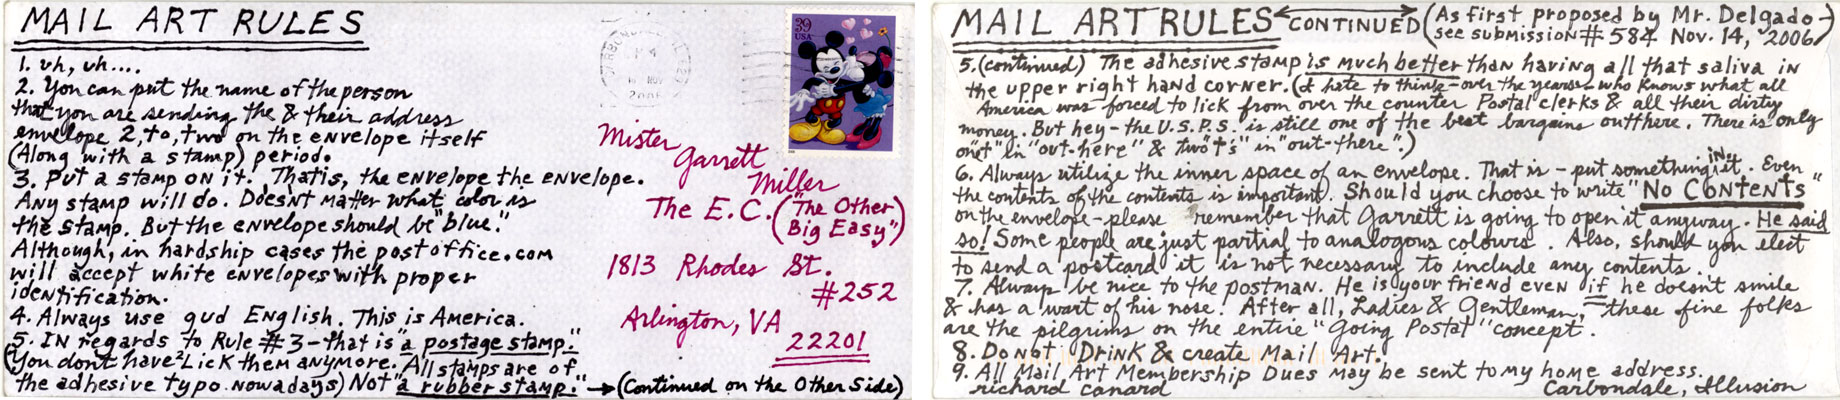 MAIL ART RULES
1. uh, uh....
2. You can put the name of the person
that you are sending the & their address
envelope 2, to, two on the envelope itself
(Along with a stamp) period.
3. Put a stamp on it. That is, the envelope the envelope.
Any stamp will do. Doesn't matter what color is
the stamp. But the envelope should be "blue."
Although, in hardship cases the post office.com
will accept white envelopes with proper
identification.
4. Always use gud English. This is America.
5. In regards to Rule #3 - that is "a postage stamp."
(You don't have 2 Lick them anymore. All stamps are of
the adhesive typo nowadays) Not "a rubber stamp." → (Continued on the Other Side)
39
USA
Mister
Garrett
Miller
The E.C. ("The Other
Big Easy")
1813 Rhodes St.
#252
Arlington, VA
22201
MAIL ART RULES ←CONTINUED→ (As first proposed by Mr. Delgado-
see submission # 584 Nov. 14, 2006)
5. (continued) The adhesive stamp is much better than having all that saliva in
the upper right hand corner. (I hate to think - over the years - who knows what all
America was forced to lick from over the counter Postal clerks & all their dirty
money. But hey - the U.S.P.S. is still one of the best bargains outthere. There is only
one "t" in "out-here" & two "t's" in "out-there".)
6. Always utilize the inner space of an envelope. That is - put something in it. Even
the contents of the contents is important). Should you choose to write "NO CONTENTS"
on the envelope - please remember that Garrett is going to open it anyway. He said
so! Some people are just partial to analogous colours. Also, should you elect
to send a postcard it is not necessary to include any contents.
7. Always be nice to the postman. He is your friend even if he doesn't smile
& has a wart of his nose. After all, Ladies & Gentleman, these fine folks
are the pilgrims on the entire "Going Postal" concept.
8. Do not Drink & create Mail Art.
9. All Mail Art Membership Dues may be sent to my home address.
richard canard Carbondale, Illusion